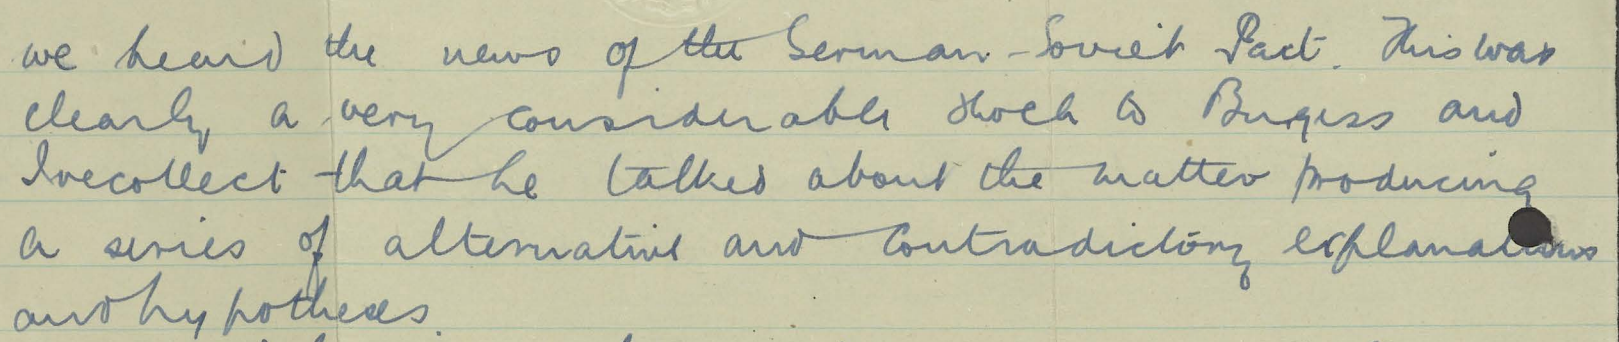 we heard the news of the German-Soviet Pact. This was
clearly a very considerable shock to Burgess and
I recollect that he talked about the matter producing
a series of alternative and contradictory explanations
and hypotheses.